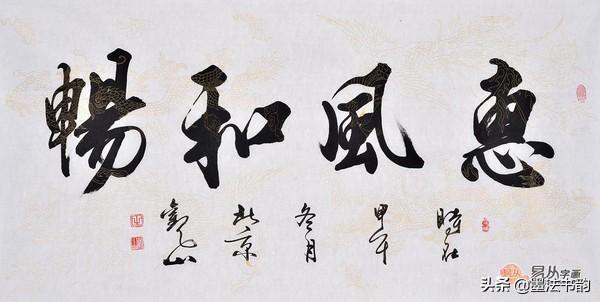 惠風和暢
時在
甲午
冬月
北京
易从字画
头条 @幽法书韵